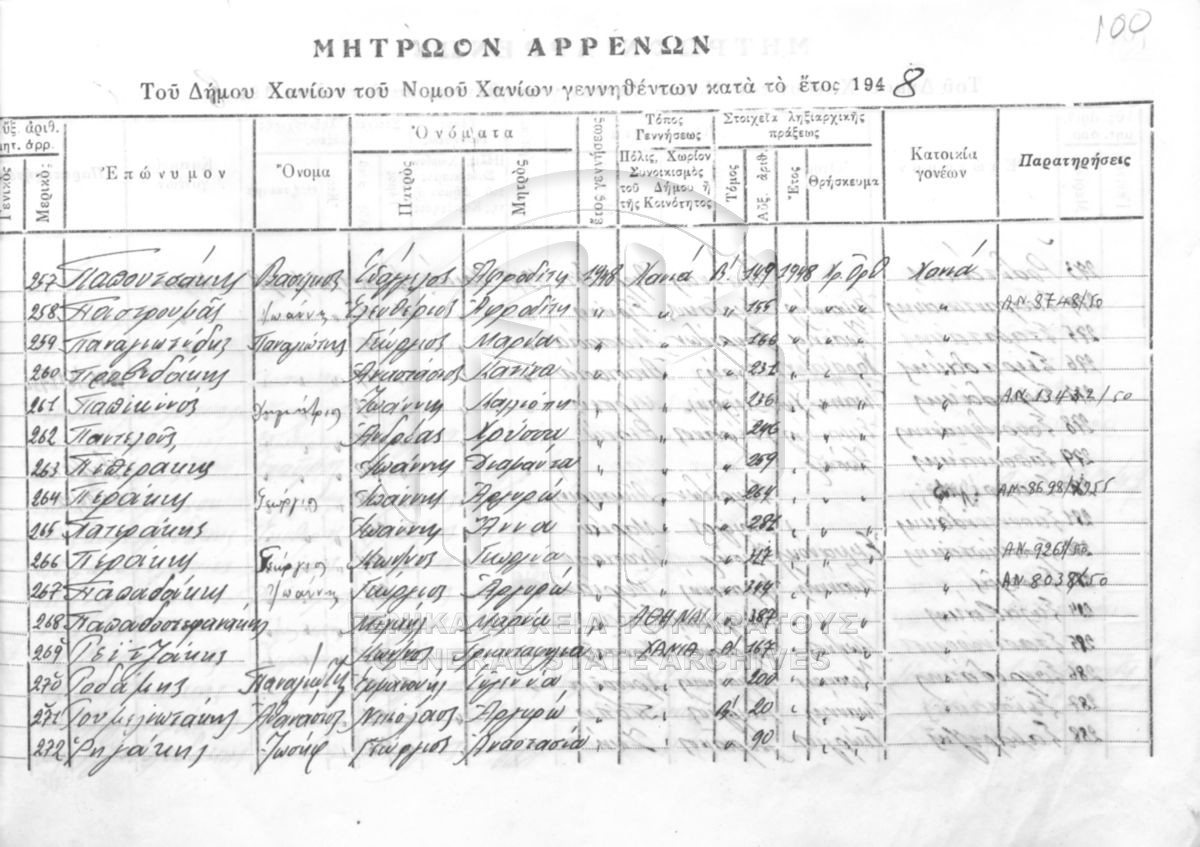 100
ΜΗΤΡΩΟΝ ΑΡΡΕΝΩΝ
Τοῦ Δήμου Χανίων τοῦ Νομοῦ Χανίων γεννηθέντων κατὰ τὸ ἔτος 1948
Αὔξ. ἀριθ. μητ. ἀρρ. Γενικὸς Μερικὸς Ἐπώνυμον Ὄνομα Ὀνόματα Πατρὸς Μητρὸς ἔτος γεννήσεως Τόπος Γεννήσεως Πόλις, Χωρίον Συνοικισμὸς τοῦ Δήμου ἢ τῆς Κοινότητος Στοιχεῖα ληξιαρχικῆς πράξεως Τόμος Αὔξ. ἀριθ. Ἔτος Θρήσκευμα Κατοικία γονέων Παρατηρήσεις
257 Παπουτσάκης Βασίλειος Εὐάγγελος Ἀφροδίτη 1948 Χανιά Β' 149 1948 Χρ. Ὀρθ Χανιά
258 Παστρουμᾶς Ἰωάννης Ἐλευθέριος Ἀφροδίτη " " " 155 " " " " Α.Ν. 8748/50
259 Παναγιωτίδης Παναγιώτης Γεώργιος Μαρία " " " 166 " " " "
260 Ἀναστάσιος " " " 231 " " " "
261 Δημήτριος Ἰωάννης Καλλιόπη " " " 236 " " " "
262 Παντελοῦς Ἀνδρέας Χρύσσα " " " 246 " " " "
263 Πεθεράκης Ἰωάννης Διαμάντα " " " 259 " " " "
264 Περάκης Γεώργιος Ἰωάννης Ἀργυρώ " " " 264 " " "
265 Πατεράκης Ἰωάννης Ἄννα " " " " " " "
266 Περάκης Γεώργιος Γεωργία " " " " " " "
267 Παπαδάκης Ἰωάννης Γεώργιος Ἀργυρώ " " " " " " "
268 Παπαδοστεφανάκης Μιχαήλ Μαρία " ΑΘΗΝΑΙ " 387 " " " "
269 Τριανταφυλλιά " ΧΑΝΙΑ Α' 167 " " " "
270 Ροδάμης Παναγιώτης Ἐμμανουήλ Εὐγενία " " " 200 " " " "
271 Ρουμελιωτάκης Ἀθανάσιος Νικόλαος Ἀργυρώ " " Β' 20 " " " "
272 Ρηγάκης Ἰωσήφ Γεώργιος Ἀναστασία " " " 90 " " " "
ΓΕΝΙΚΑ ΑΡΧΕΙΑ ΤΟΥ ΚΡΑΤΟΥΣ
GENERAL STATE ARCHIVES